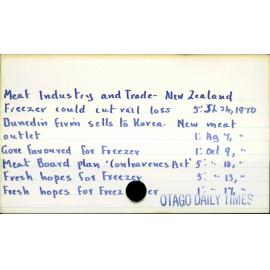 Meat Industry and Trade - New Zealand
Freezer could cut rail loss 5: Jl 24, 1970
Dunedin firm sells to Korea. New meat
outlet 1: Ag 7, "
Gore favoured for Freezer 1: Oct 9, "
Meat Board plan 'Contravenes Act' 5: " 10, "
Fresh hopes for Freezer 5: " 13, "
Fresh hopes for Freezer 1: " 17, "
OTAGO DAILY TIMES